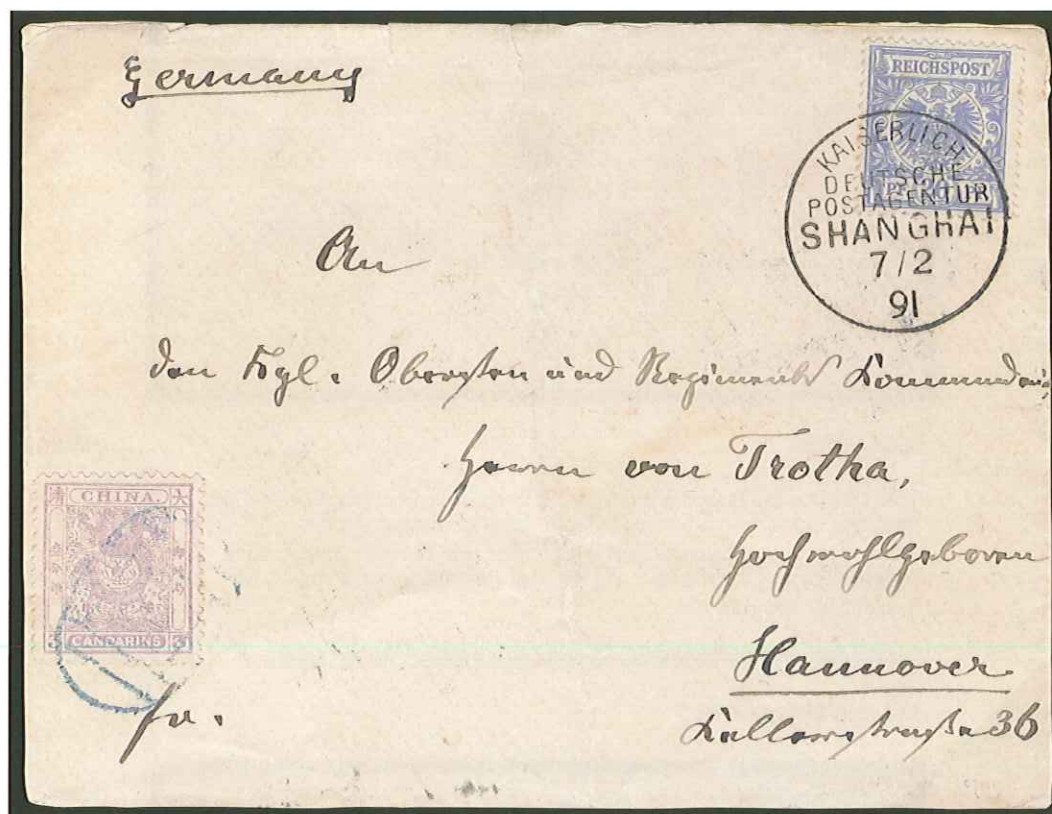 Germany
REICHSPOST
KAISERLICH
DEUTSCHE
POSTAGENTUR
SHANGHAI
7/2
91
An
den Kgl. Obersten und Regiments Kommandeur
Herrn von Trotha,
Hochwohlgeboren
清 CHINA. 大
3 CANDARINS 3
Hannover
fr.
36